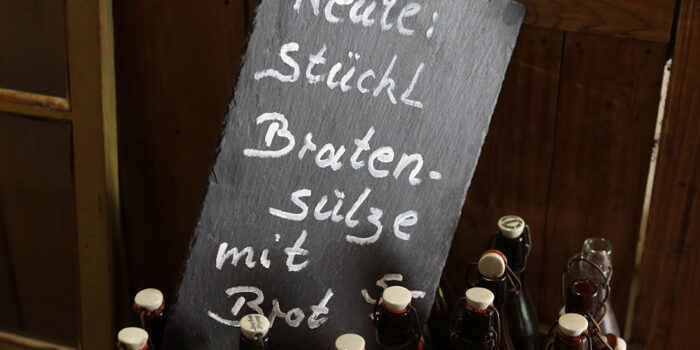 Heute:
Stückl
Braten-
sülze
mit
Brot 5